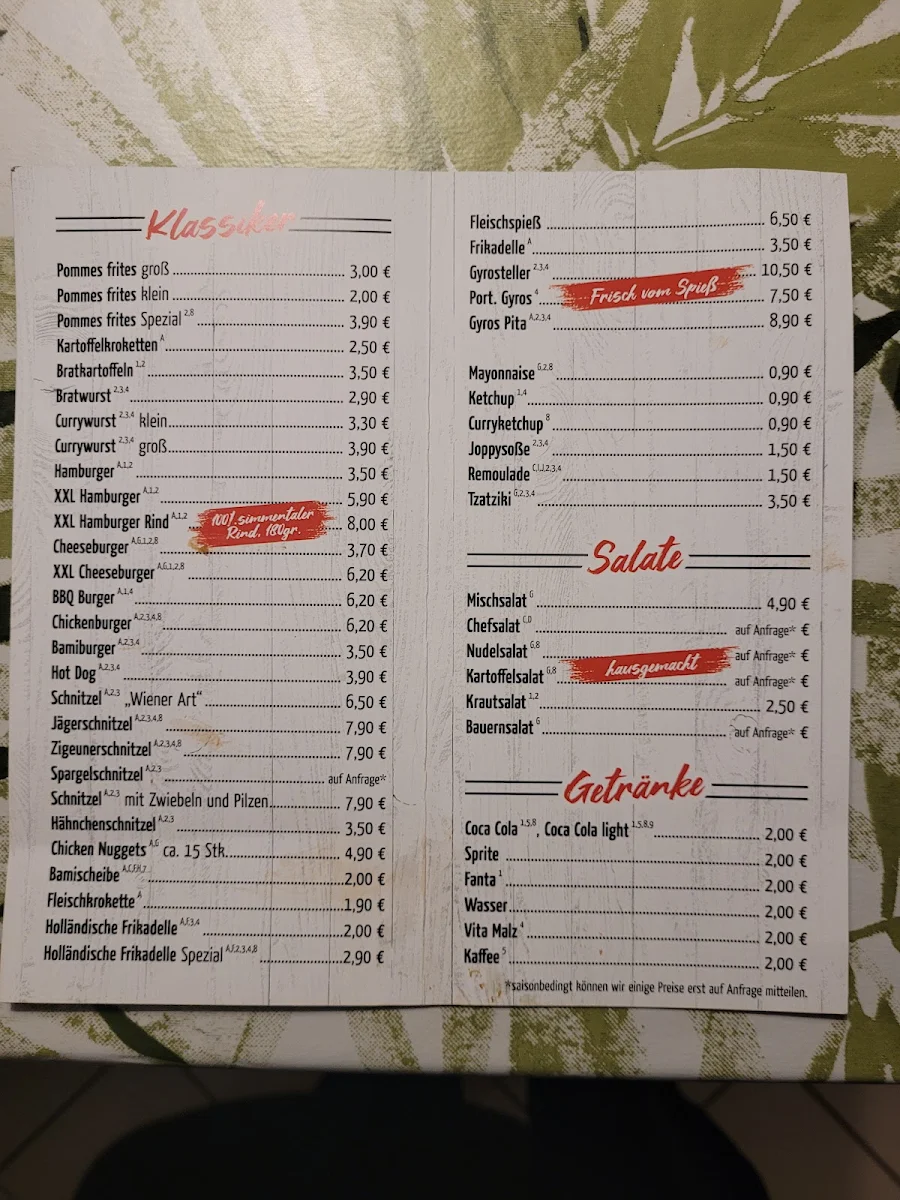 Klassiker
Pommes frites groß 3,00 €
Pommes frites klein 2,00 €
Pommes frites Spezial 2,8 3,90 €
Kartoffelkroketten A 2,50 €
Bratkartoffeln 1,2 3,50 €
Bratwurst 2,3,4 2,90 €
Currywurst 2,3,4 klein 3,30 €
Currywurst 2,3,4 groß 3,90 €
Hamburger A,1,2 3,50 €
XXL Hamburger A,1,2 5,90 €
XXL Hamburger Rind A,1,2 8,00 €
100% simmentaler
Rind, 180gr.
Cheeseburger A,G,1,2,8 3,70 €
XXL Cheeseburger A,G,1,2,8 6,20 €
BBQ Burger A,1,4 6,20 €
Chickenburger A,2,3,4,8 6,20 €
Bamiburger A,2,3,4 3,50 €
Hot Dog A,2,3,4 3,90 €
Schnitzel A,2,3 „Wiener Art“ 6,50 €
Jägerschnitzel A,2,3,4,8 7,90 €
Zigeunerschnitzel A,2,3,4,8 7,90 €
Spargelschnitzel A,2,3 auf Anfrage*
Schnitzel A,2,3 mit Zwiebeln und Pilzen 7,90 €
Hähnchenschnitzel A,2,3 3,50 €
Chicken Nuggets A,G ca. 15 Stk. 4,90 €
Bamischeibe 2,00 €
Fleischkrokette A 1,90 €
Holländische Frikadelle A,F,3,4 2,00 €
Holländische Frikadelle Spezial A,F,2,3,4,8 2,90 €
Fleischspieß 6,50 €
Frikadelle A 3,50 €
Gyrosteller 2,3,4 10,50 €
Port. Gyros 4 7,50 €
Frisch vom Spieß
Gyros Pita A,2,3,4 8,90 €
Mayonnaise G,2,8 0,90 €
Ketchup 1,4 0,90 €
Curryketchup 8 0,90 €
Joppysoße 2,3,4 1,50 €
Remoulade C,I,J,2,3,4 1,50 €
Tzatziki G,2,3,4 3,50 €
Salate
Mischsalat G 4,90 €
Chefsalat C,D auf Anfrage* €
Nudelsalat G,8 auf Anfrage* €
hausgemacht
Kartoffelsalat G,8 auf Anfrage* €
Krautsalat 1,2 2,50 €
Bauernsalat G auf Anfrage* €
Getränke
Coca Cola 1,5,8, Coca Cola light 1,5,8,9 2,00 €
Sprite 2,00 €
Fanta 1 2,00 €
Wasser 2,00 €
Vita Malz 4 2,00 €
Kaffee 5 2,00 €
*saisonbedingt können wir einige Preise erst auf Anfrage mitteilen.